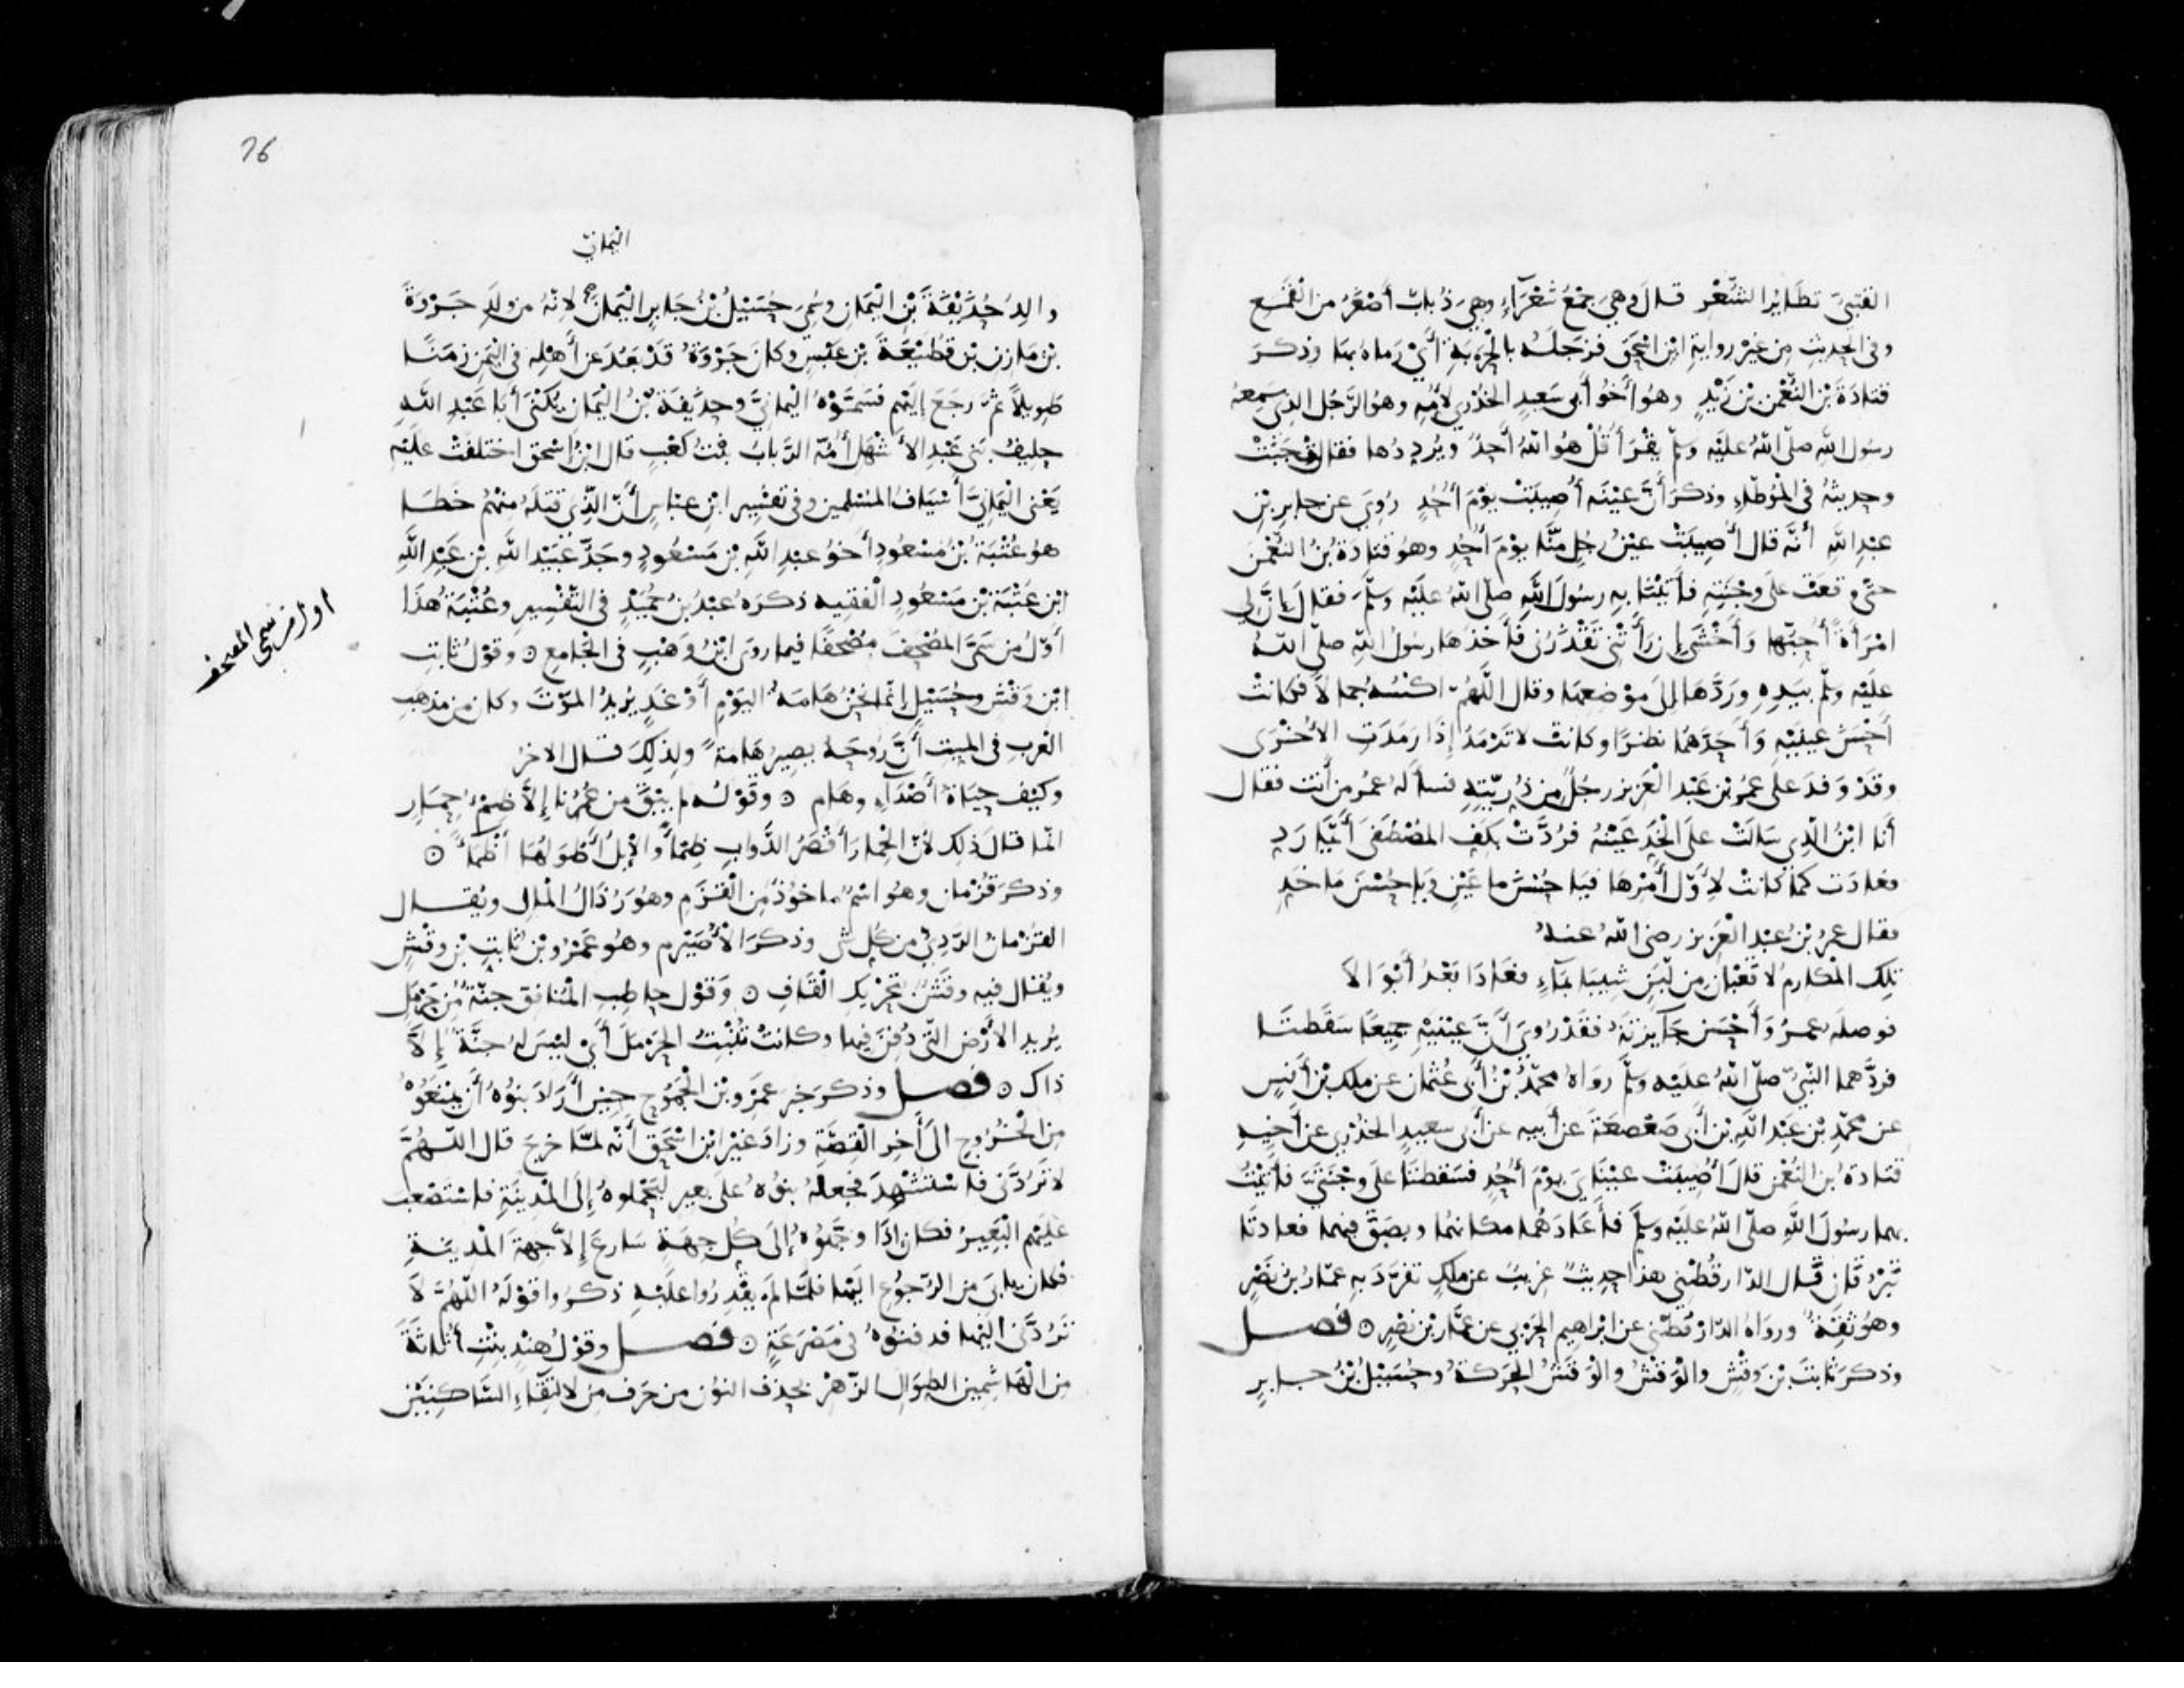 القتبي تطاير الشعر قال وهي جمع شعراء وهي ذباب أصغر من القمع
وفي الحديث من غير رواية ابن اسحق فزجله بالحربة أي رماه بها وذكر
قتادة بن النعمن بن زيد وهو أخو أبي سعيد الخدري لأمه وهو الرجل الذي سمعه
رسول الله صلى الله عليه وسلم يقرأ قل هو الله أحد ويرددها فقال وجبت
وحديثه في الموطاء وذكر أن عينه أصيبت يوم أحد روي عن جابر بن
عبد الله أنه قال أصيبت عين رجل منا يوم أحد وهو قتادة بن النعمن
حتى وقعت على وجنته فأتينا به رسول الله صلى الله عليه وسلم فقال إن لي
امرأة أحبها وأخشى إن رأتني تقذرني فأخذها رسول الله صلى الله
عليه وسلم بيده وردها إلى موضعها وقال اللهم اكسه جمالا فكانت
أحسن عينيه وأحدهما نظرا وكانت لا ترمد إذا رمدت الأخرى
وقد وفد على عمر بن عبد العزيز رجل من ذريته فسأله عمر من أنت فقال
أنا ابن الذي سالت على الخد عينه فردت بكف المصطفى أيما رد
فعادت كما كانت لأول أمرها فيا حسن ما عين ويا حسن ما خد
فقال عمر بن عبد العزيز رضي الله عنه
تلك المكارم لا قعبان من لبن شيبا بماء فعادا بعد أبوالا
فوصله عمر وأحسن جايزته فقد روي أن عينيه جميعا سقطتا
فردهما النبي صلى الله عليه وسلم رواه محمد بن أبي عثمان عن ملك بن أنس
عن محمد بن عبد الله بن أبي صعصعة عن أبيه عن أبي سعيد الخدري عن أخيه
قتادة بن النعمن قال أصيبت عيناي يوم أحد فسقطتا على وجنتي فأتيت
بهما رسول الله صلى الله عليه وسلم فأعادهما مكانهما وبصق فيهما فعادتا
تبرقان قال الدارقطني هذا حديث غريب عن ملك تفرد به عمار بن نصر
وهو ثقة ورواه الدارقطني عن ابراهيم الحربي عن عمار بن نصر ⊙ فصل
وذكر ثابت بن وقش والوقش والوقش الحركة وحسيل بن جابر
76
اليماني
والد حذيفة بن اليمان وسمي حسيل بن جابر اليمان لانه من ولد جروة
بن مازن بن قطيعة بن عبس وكان جروة قد بعد عن أهله في اليمن زمنا
طويلا ثم رجع إليهم فسموه اليماني وحذيفة بن اليمان يكنى أبا عبد الله
حليف بني عبد الأشهل أمه الرباب بنت كعب قال ابن اسحق اختلفت عليه
يعني اليماني أسياف المسلمين وفي تفسير ابن عباس أن الذي قتله منهم خطا
هو عتبة بن مسعود أخو عبد الله بن مسعود وجد عبيد الله بن عبد الله
ابن عتبة بن مسعود الفقيه ذكره عبد بن حميد في التفسير وعتبة هذا
أول من سمى المصحف مصحفا فيما روى ابن وهب في الجامع ⊙ وقول ثابت
اول من سمى المصحف
ابن وقش وحسيل إنما نحن هامة اليوم أو غد يريد الموت وكان من مذهب
العرب في الميت أن روحه يصير هامة ولذلك قال الاخر
وكيف حياة أصداء وهام ⊙ وقوله ما يبق من عمرنا إلا ظمء حمار
انما قال ذلك لأن الحمار أقصر الدواب ظمأ والإبل أطولها أظماء ⊙
وذكر قزمان وهو اسم ماخوذ من القزم وهو رذال المال ويقال
القزمان الردي من كل شي وذكر الأصيرم وهو عمرو بن ثابت بن وقش
ويقال فيه وقش بتحريك القاف ⊙ وقول حاطب المنافق جنة من حرمل
يريد الأرض التي دفن فيها وكانت تنبت الحرمل أي ليس له جنة إلا
ذاك ⊙ فصل وذكر خبر عمرو بن الجموح حين أراد بنوه أن يمنعوه
من الخروج إلى أخر القصة وزاد غير ابن اسحق أنه لما خرج قال اللهم
لا تردني فاستشهد فجعله بنوه على بعير ليحملوه إلى المدينة فاستصعب
عليهم البعير فكان إذا وجهوه إلى كل جهة سارع إلا جهة المدينة
فكان يابى من الرجوع اليها فلما لم يقدروا عليه ذكروا قوله اللهم لا
تردني اليها فدفنوه في مصرعه ⊙ فصل وقول هند بنت أثاثة
من الهاشميين الطوال الزهر بحذف النون من حرف من لالتقاء الساكنين